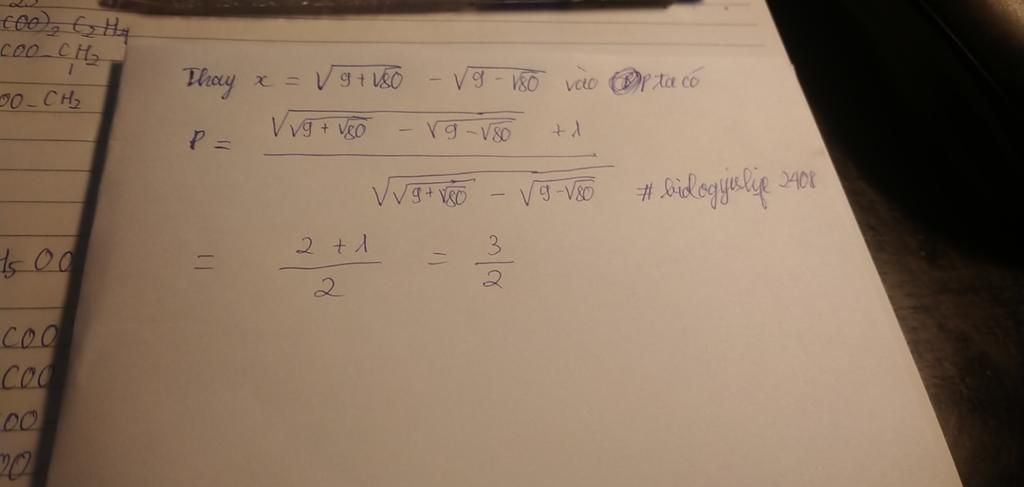 COO)₂ C₂H₄
COO-CH₂
OO-CH₂
Thay x = √(9+√80) - √(9-√80) vào P ta có
P = (√(√(9+√80) - √(9-√80)) + 1) / √(√(9+√80) - √(9-√80)) #biologyislife2408
= (2+1)/2 = 3/2
COO
COO
OO